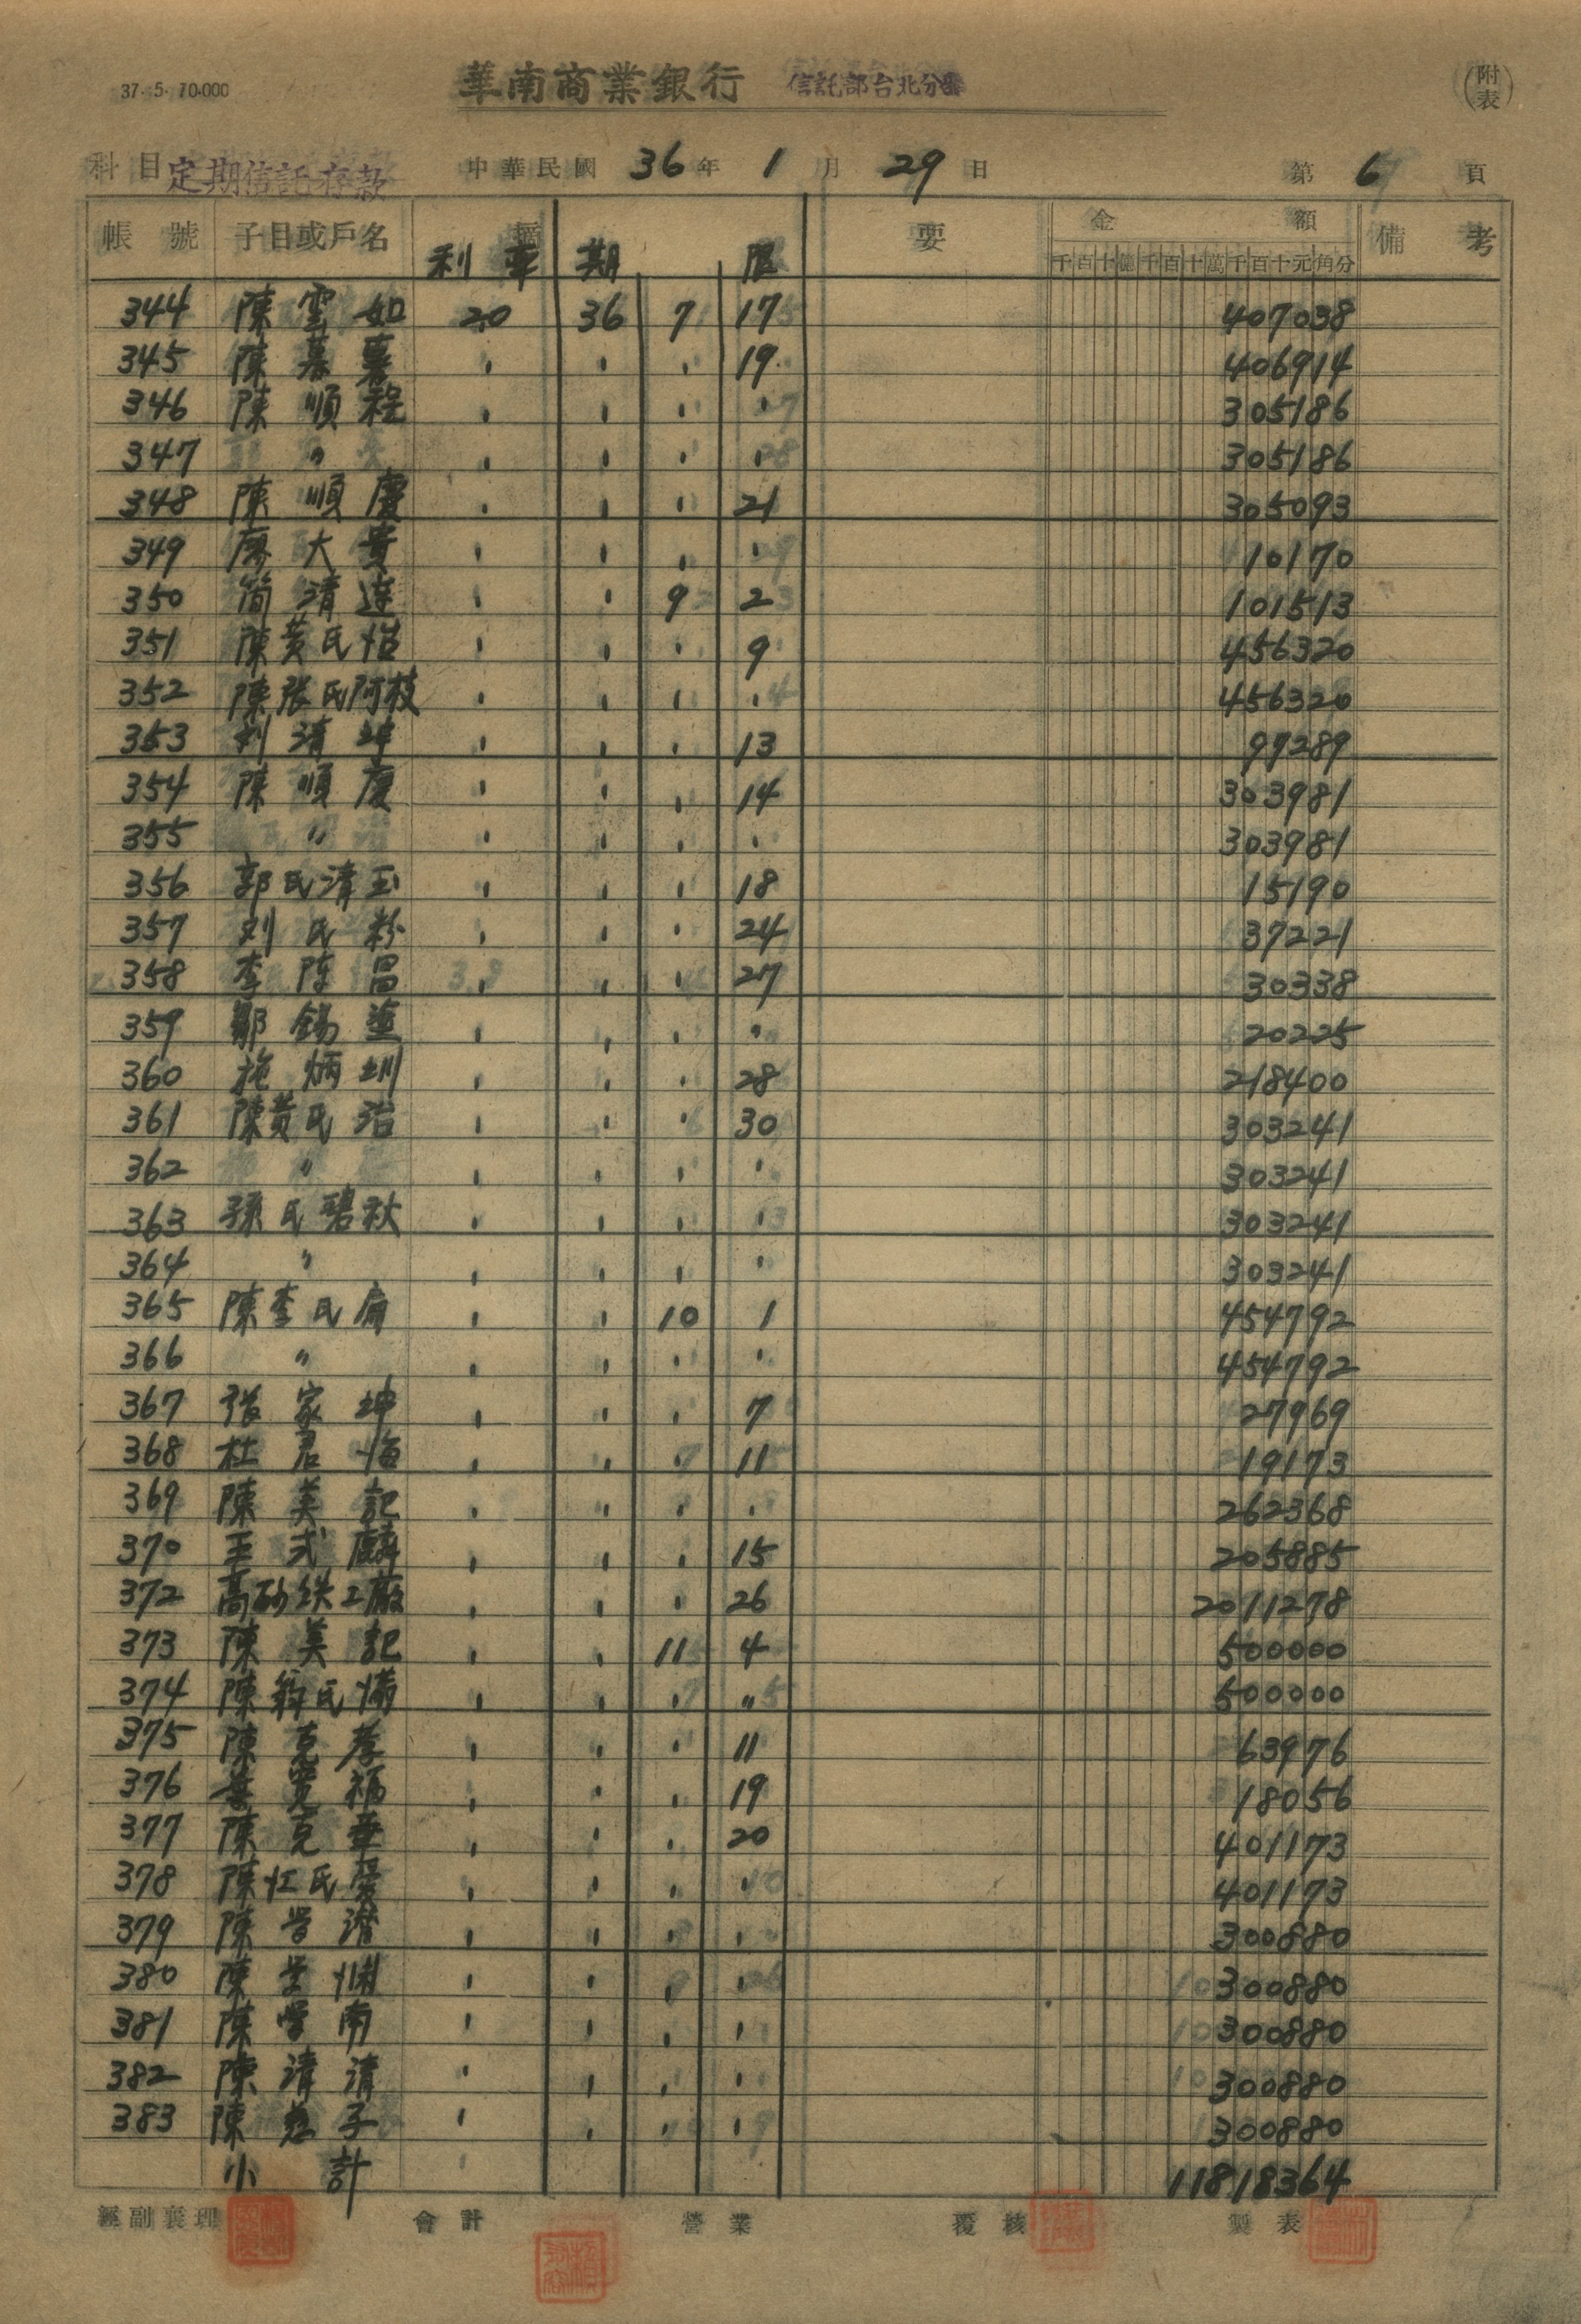 37. 5. 70.000 華南商業銀行 信託部台北分部 (附表)
科目 定期信託存款 中華民國 36 年 1 月 29 日 第 6 頁
帳號 子目或戶名 摘 要 金額 備考
利率 期 限 千百十億千百十萬千百十元角分
344 陳雲如 20 36 7 17 407038
345 陳慕襄 〃 〃 〃 19 406914
346 陳順程 〃 〃 〃 〃 305186
347 〃 〃 〃 〃 〃 305186
348 陳順慶 〃 〃 〃 21 305093
349 廖大貴 〃 〃 〃 〃 10170
350 簡清達 〃 〃 9 2 101513
351 陳黃氏怡 〃 〃 〃 9 456320
352 陳張氏阿枝 〃 〃 〃 〃 456320
353 刘清坤 〃 〃 〃 13 97289
354 陳順慶 〃 〃 〃 14 303981
355 〃 〃 〃 〃 〃 303981
356 郭氏清玉 〃 〃 〃 18 15190
357 刘氏粉 〃 〃 〃 24 37221
358 李陳昌 〃 〃 〃 27 30338
359 鄒錫 〃 〃 〃 〃 20225
360 施炳圳 〃 〃 〃 28 218400
361 陳黃氏治 〃 〃 〃 30 303241
362 〃 〃 〃 〃 〃 303241
363 孫氏碧秋 〃 〃 〃 〃 303241
364 〃 〃 〃 〃 〃 303241
365 陳李氏 〃 〃 10 1 454792
366 〃 〃 〃 〃 〃 454792
367 張家坤 〃 〃 〃 7 27969
368 杜君 〃 〃 〃 11 19173
369 陳美記 〃 〃 〃 〃 262368
370 王式麟 〃 〃 〃 15 205885
372 高砂鉄工廠 〃 〃 〃 26 2011278
373 陳美記 〃 〃 11 4 500000
374 陳翁氏 〃 〃 〃 〃 500000
375 陳克孝 〃 〃 〃 11 63976
376 葉寛福 〃 〃 〃 19 18056
377 陳克華 〃 〃 〃 20 401173
378 陳江氏愛 〃 〃 〃 〃 401173
379 陳学 〃 〃 〃 〃 300880
380 陳学渊 〃 〃 〃 〃 300880
381 陳学南 〃 〃 〃 〃 300880
382 陳清清 〃 〃 〃 〃 300880
383 陳慈子 〃 〃 〃 〃 300880
小計 11818364
經副襄理 會計 營業 覆核 製表